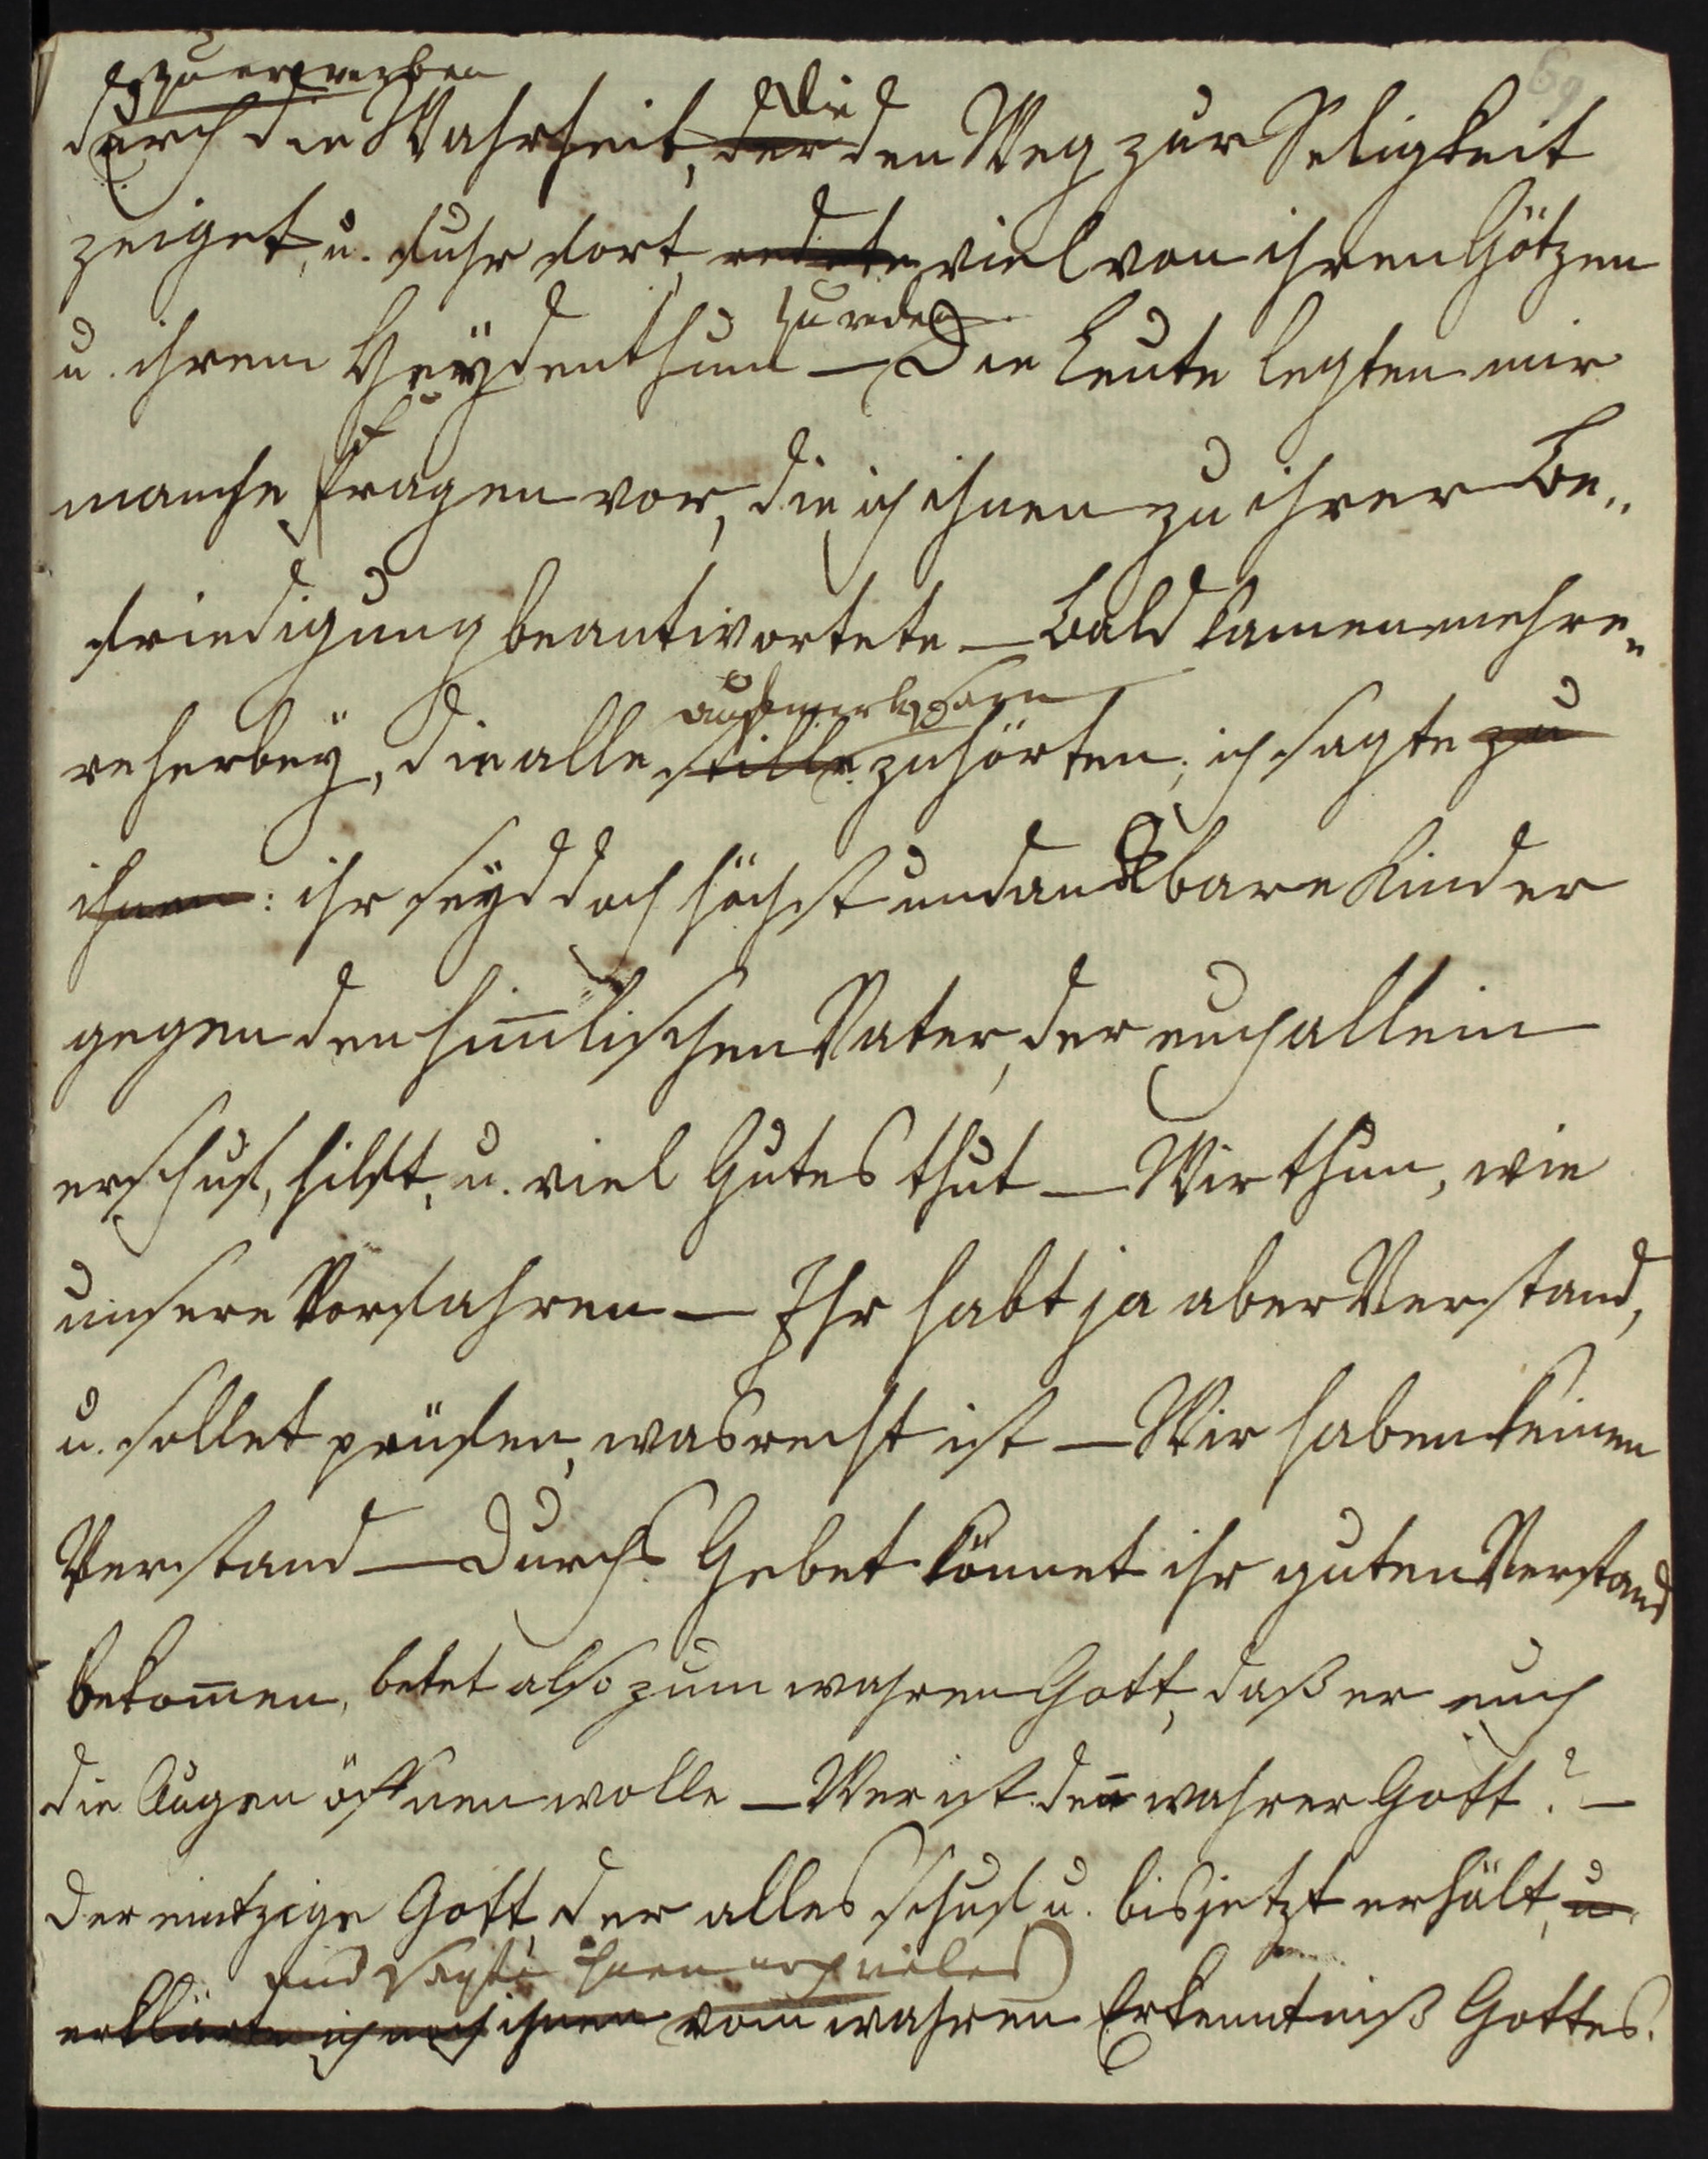 zu erwerben
durch die Wahrheit, der die den Weg zur Seligkeit
zeiget, u. fuhr fort, redete viel von ihren Götzen
zu reden
u. ihrem Heÿdenthum — Die Leute legten mir
manche Fragen vor, die ich ihnen zu ihrer Be„
friedigung beantwortete — Bald kamen mehre„
aufmerksam
re herbeÿ, die alle stille zuhörten; ich sagte zu
ihnen: ihr seÿd doch höchst undankbare Kinder
gegen den him̄lischen Vater, der euch allein
erschuf, hilft, u. viel Gutes thut — Wir thun, wie
unsere Vorfahren — Ihr habt ja aber Verstand,
u. sollet prüfen, was recht ist — Wir haben keinen
Verstand — Durchs Gebet könnet ihr guten Verstand
bekom̄en, betet also zum wahren Gott, daß er euch
die Augen öffnen wolle — Wer ist den̄ wahrer Gott? —
Der eintzige Gott, der alles schuf u. bis jetzt erhält, u.
und sagte ihnen noch vieles
erklärte ich noch ihnen vom wahren Erkenntniß Gottes.